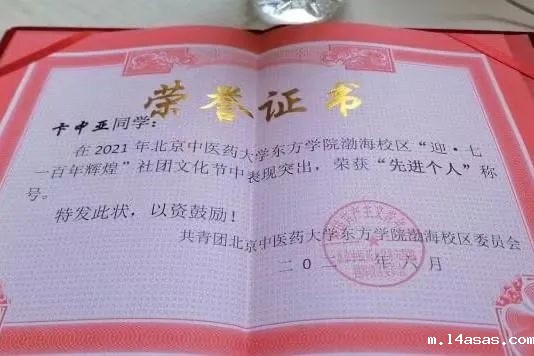 荣誉证书
卡中亚同学：
在2021年北京中医药大学东方学院渤海校区“迎·七
一百年辉煌”社团文化节中表现突出，荣获“先进个人”称
号。
特发此状，以资鼓励！
共青团北京中医药大学东方学院渤海校区委员会
二〇二 年六月
m.14asas.com